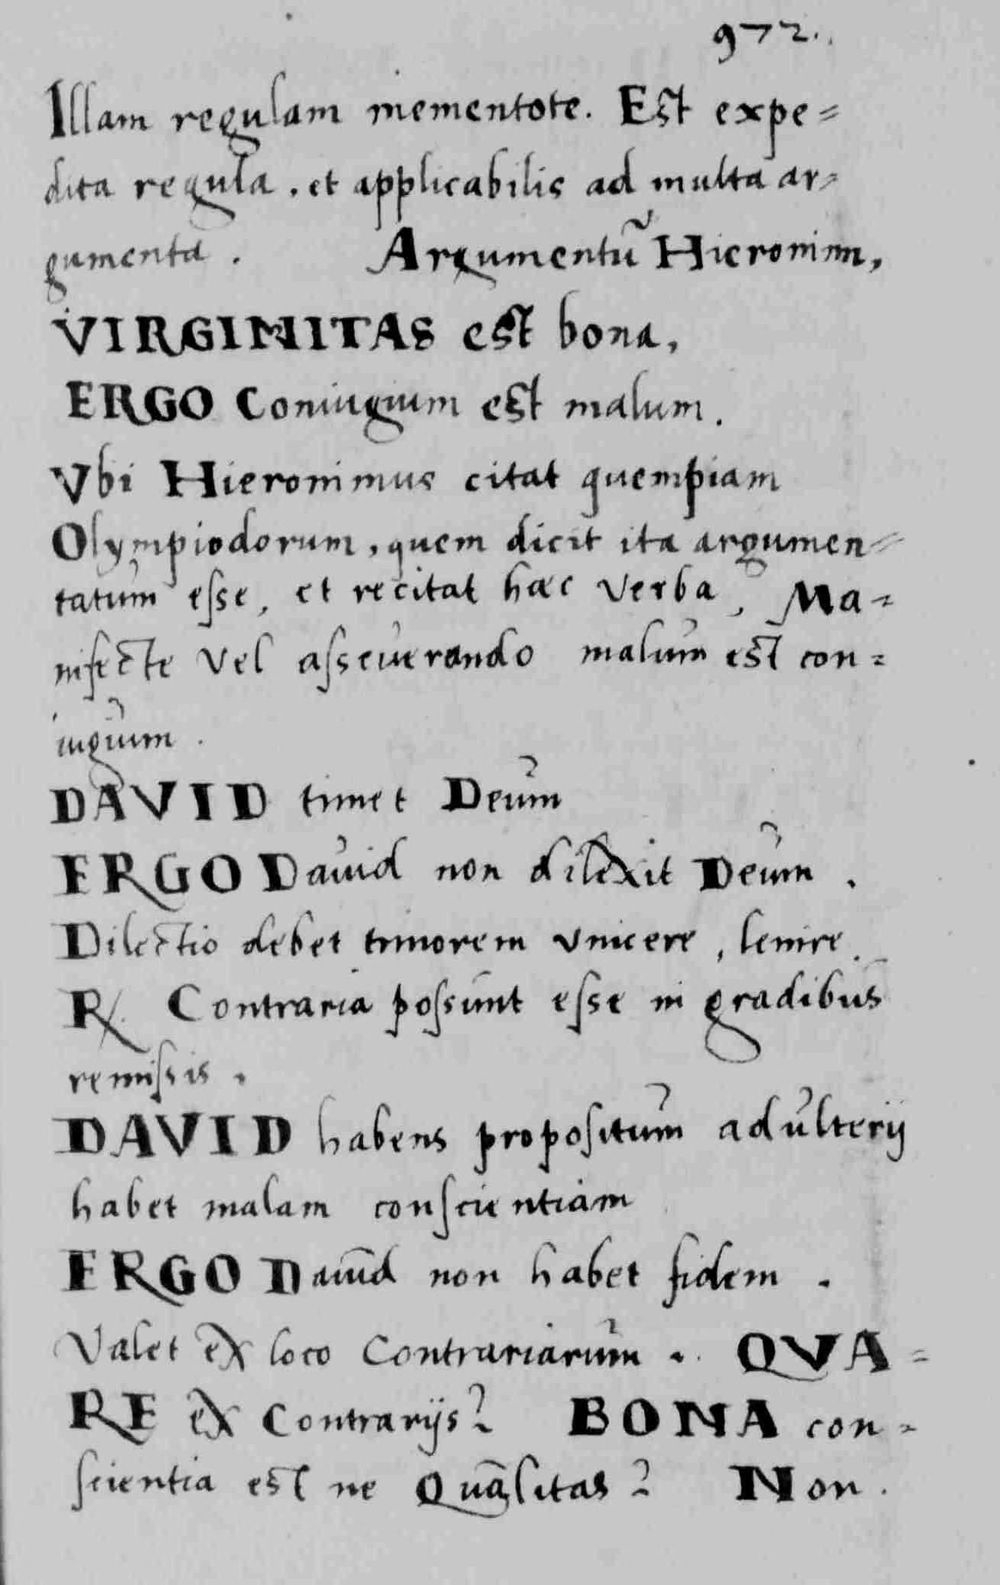 972.
Illam regulam mementote. Est expe=
dita regula, et applicabilis ad multa ar=
gumenta. Argumentũ Hieronimi,
VIRGINITAS est bona,
ERGO Coniugium est malum.
Vbi Hieronimus citat quempiam
Olympiodorum, quem dicit ita argumen=
tatum esse, et recitat haec verba, Ma=
nifecte vel asseuerando malum est con=
iugium.
DAVID timet Deum
ERGO Dauid non dilexit Deum.
Dilectio debet timorem vincere, lenire.
R. Contraria possunt esse in gradibus
remissis.
DAVID habens propositum adulterij
habet malam conscientiam
ERGO Dauid non habet fidem.
Valet ex loco Contrariarum. QVA=
RE ex Contrarijs? BONA con=
scientia est ne Qualitas? Non.